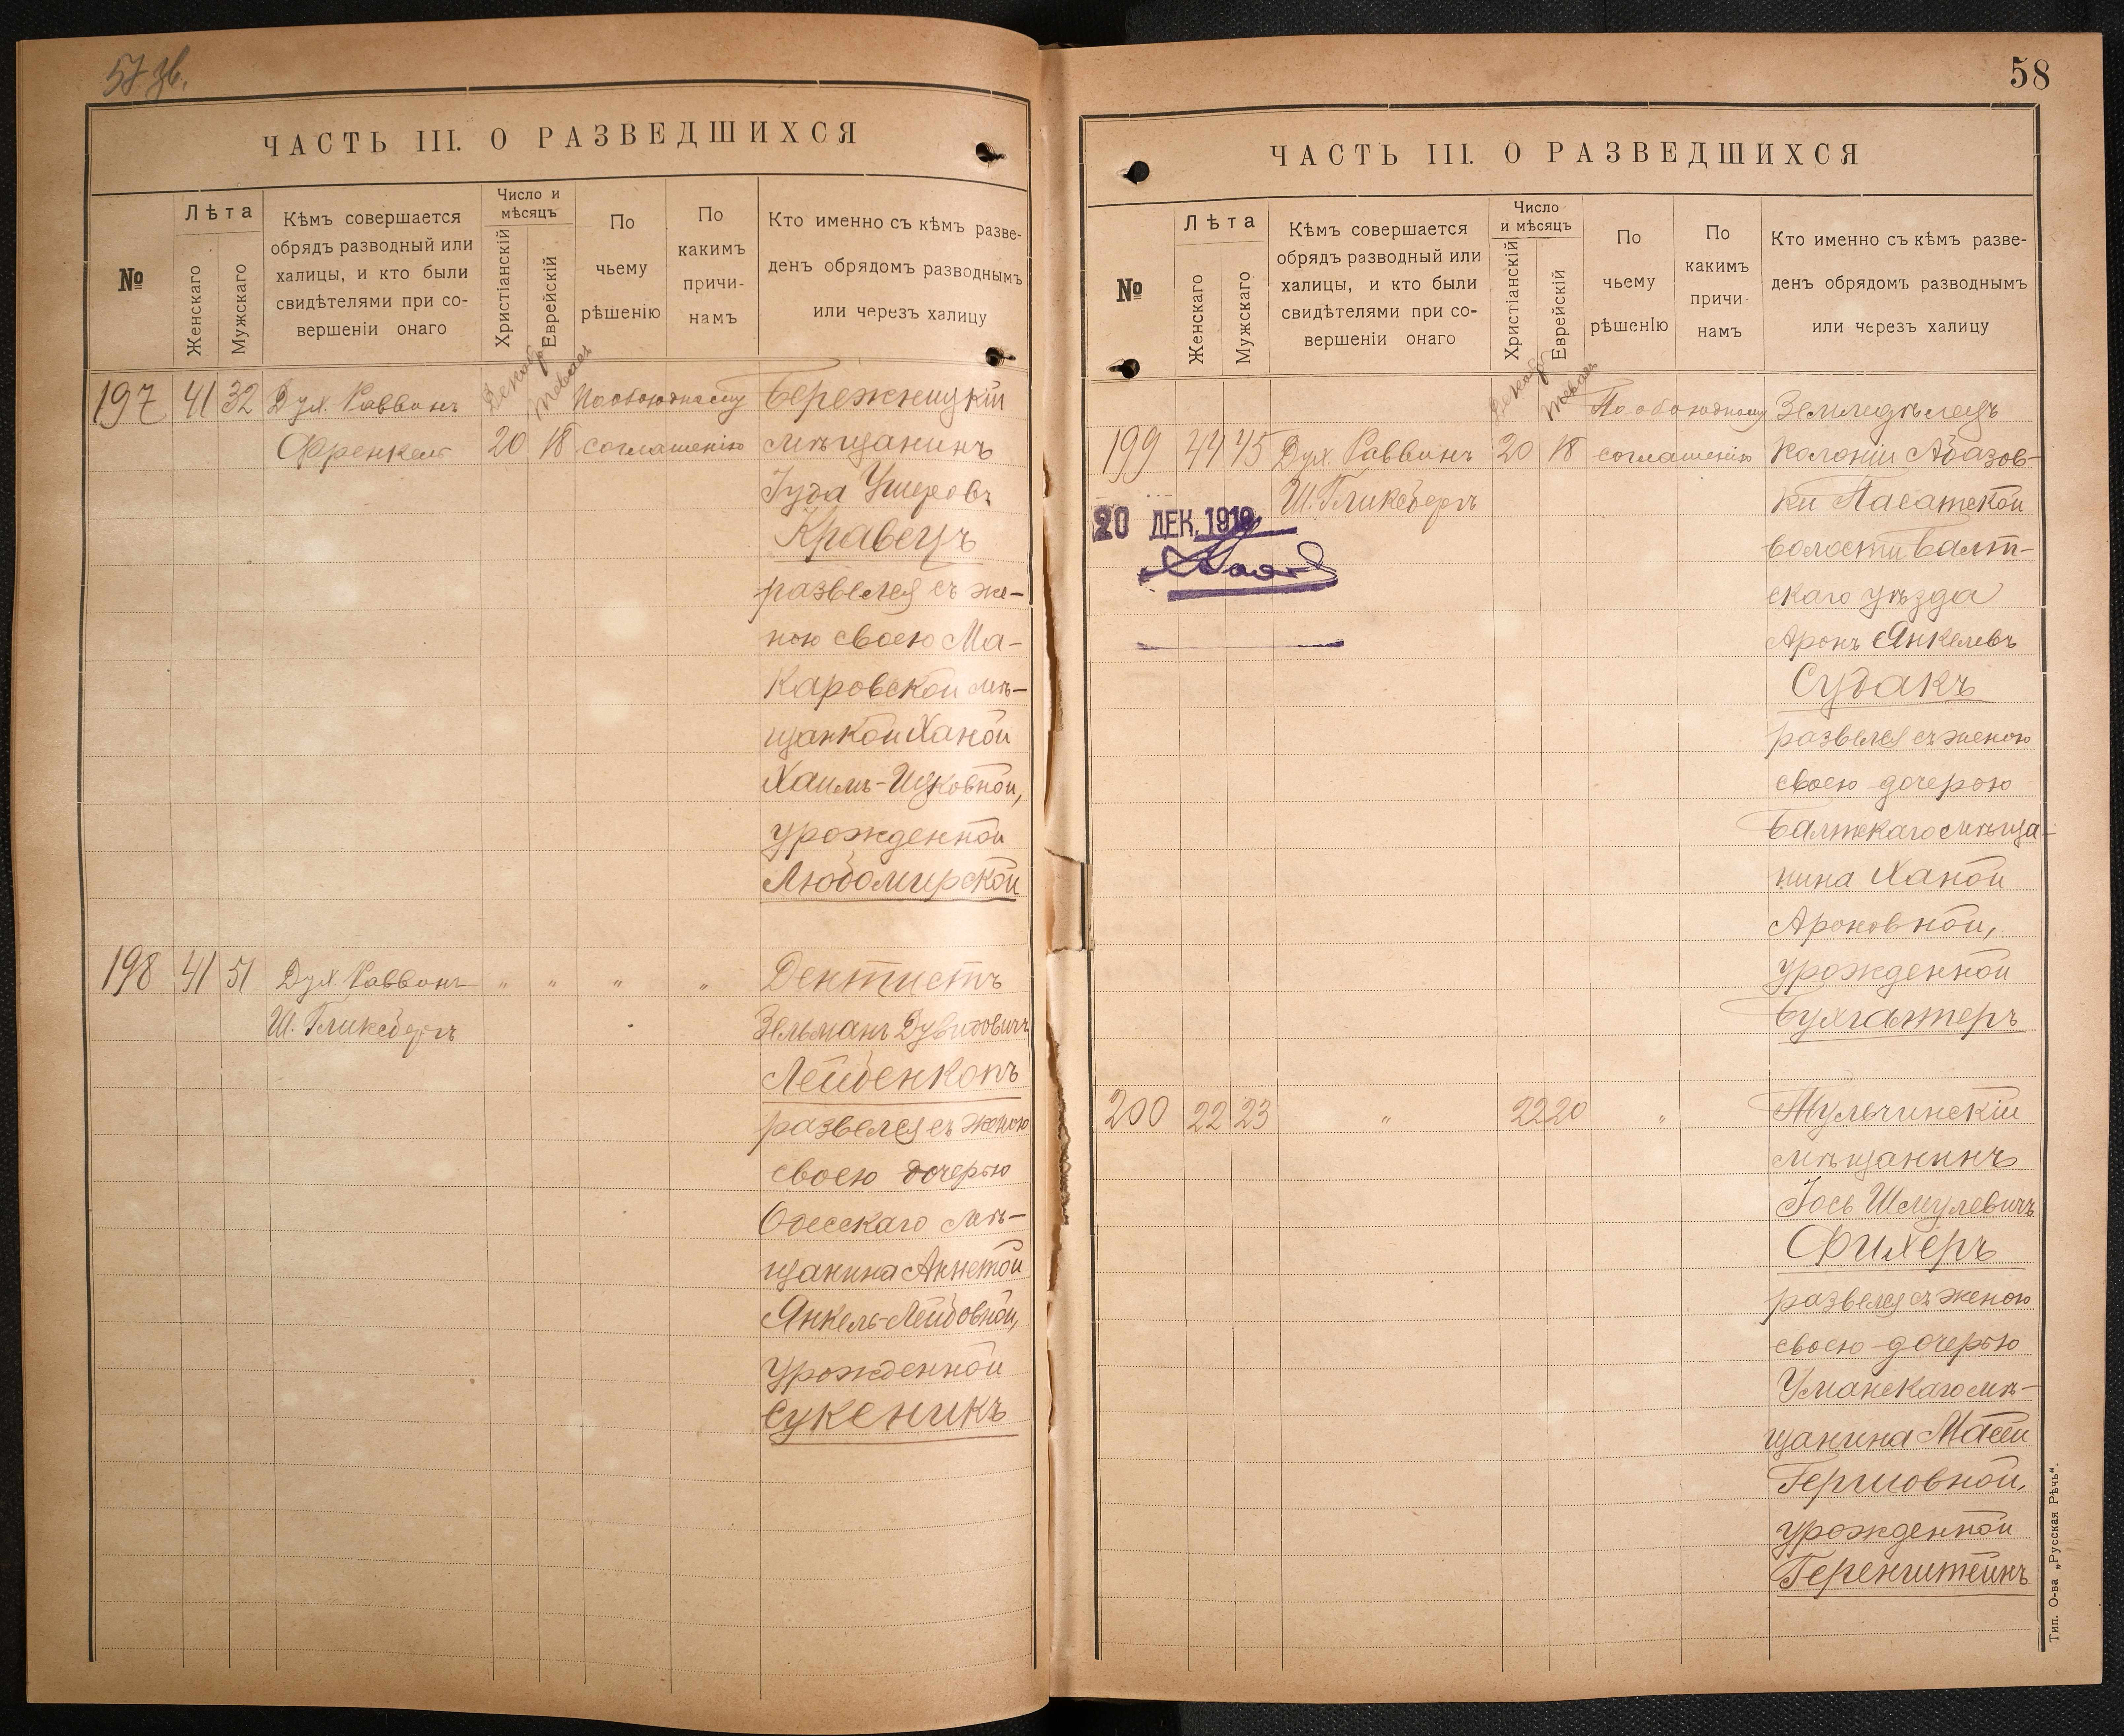 57 зв.
ЧАСТЬ III. О РАЗВЕДШИХСЯ
№
Лѣта
Женскаго
Мужскаго
Кѣмъ совершается
обрядъ разводный или
халицы, и кто были
свидѣтелями при со-
вершеніи онаго
Число и
мѣсяцъ
Христіанскій
Еврейскій
По
чьему
рѣшенію
По
какимъ
причи-
намъ
Кто именно съ кѣмъ разве-
денъ обрядомъ разводнымъ
или черезъ халицу
Декабр Теваез
197 41 32 Дух. Раввинъ По обоюдному Бережницкій
Френкель 20 18 соглашенію мѣщанинъ
Іуда Ушеровъ
Кравецъ
развелся съ же-
ною своею Ма-
каровской мѣ-
щанкой Ханой
Хаимъ-Ицковной,
урожденной
Любомирской
198 41 51 Дух. Раввинъ " " " " Дентистъ
Ш. Гликсбергъ Зельманъ Дувидовичъ
Лейбенкопъ
развелся съ женою
своею дочерью
Одесскаго мѣ-
щанина Аннетой
Янкель-Лейбовной,
урожденной
Сукеникъ
58
ЧАСТЬ III. О РАЗВЕДШИХСЯ
№
Лѣта
Женскаго
Мужскаго
Кѣмъ совершается
обрядъ разводный или
халицы, и кто были
свидѣтелями при со-
вершеніи онаго
Число
и мѣсяцъ
Христіанскій
Еврейскій
По
чьему
рѣшенІю
По
какимъ
причи-
намъ
Кто именно съ кѣмъ разве-
денъ обрядомъ разводнымъ
или черезъ халицу
Декабр
По обоюдному Земледѣлецъ
199 44 45 Дух. Раввинъ 20 18 соглашенію колоніи Абазов-
Ш. Гликсбергъ ки Пасатской
20 ДЕК. 1910 волости Балт-
скаго уѣзда
Аронъ Янкелевъ
Судакъ
развелся съ женою
своею дочерою
Балтскаго мѣща-
нина Ханой
Ароновной,
урожденной
Бухгалтеръ
200 22 23 " 22 20 " Тульчинскій
мѣщанинъ
Іось Шмулевичъ
Фихеръ
развелся съ женою
своею дочерью
Уманскаго мѣ-
щанина Масей
Гершовной,
урожденной
Геренштейнъ
Тип. О-ва „Русская Рѣчь“.